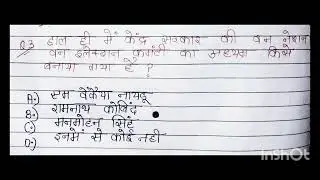 Q.3 हाल ही में केंद्र सरकार की वन नेशन
वन इलेक्शन कमेटी का सदस्य किसे
बनाया गया है ?
A.) एम वेंकैया नायडू
B.) रामनाथ कोविंद
C.) मनमोहन सिंह
D.) इनमें से कोई नहीं
InShOt